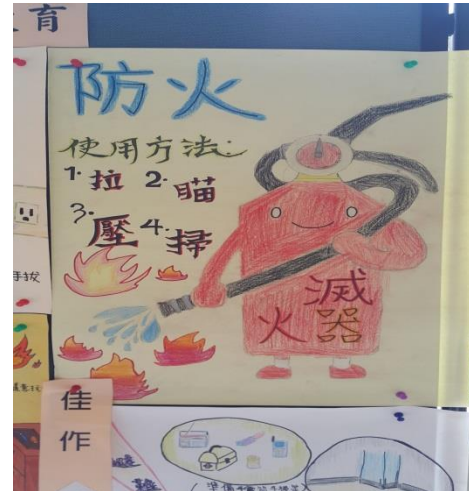 育
防火
使用方法:
1.拉 2.瞄
3.壓 4.掃
滅
火器
手拔
佳
作